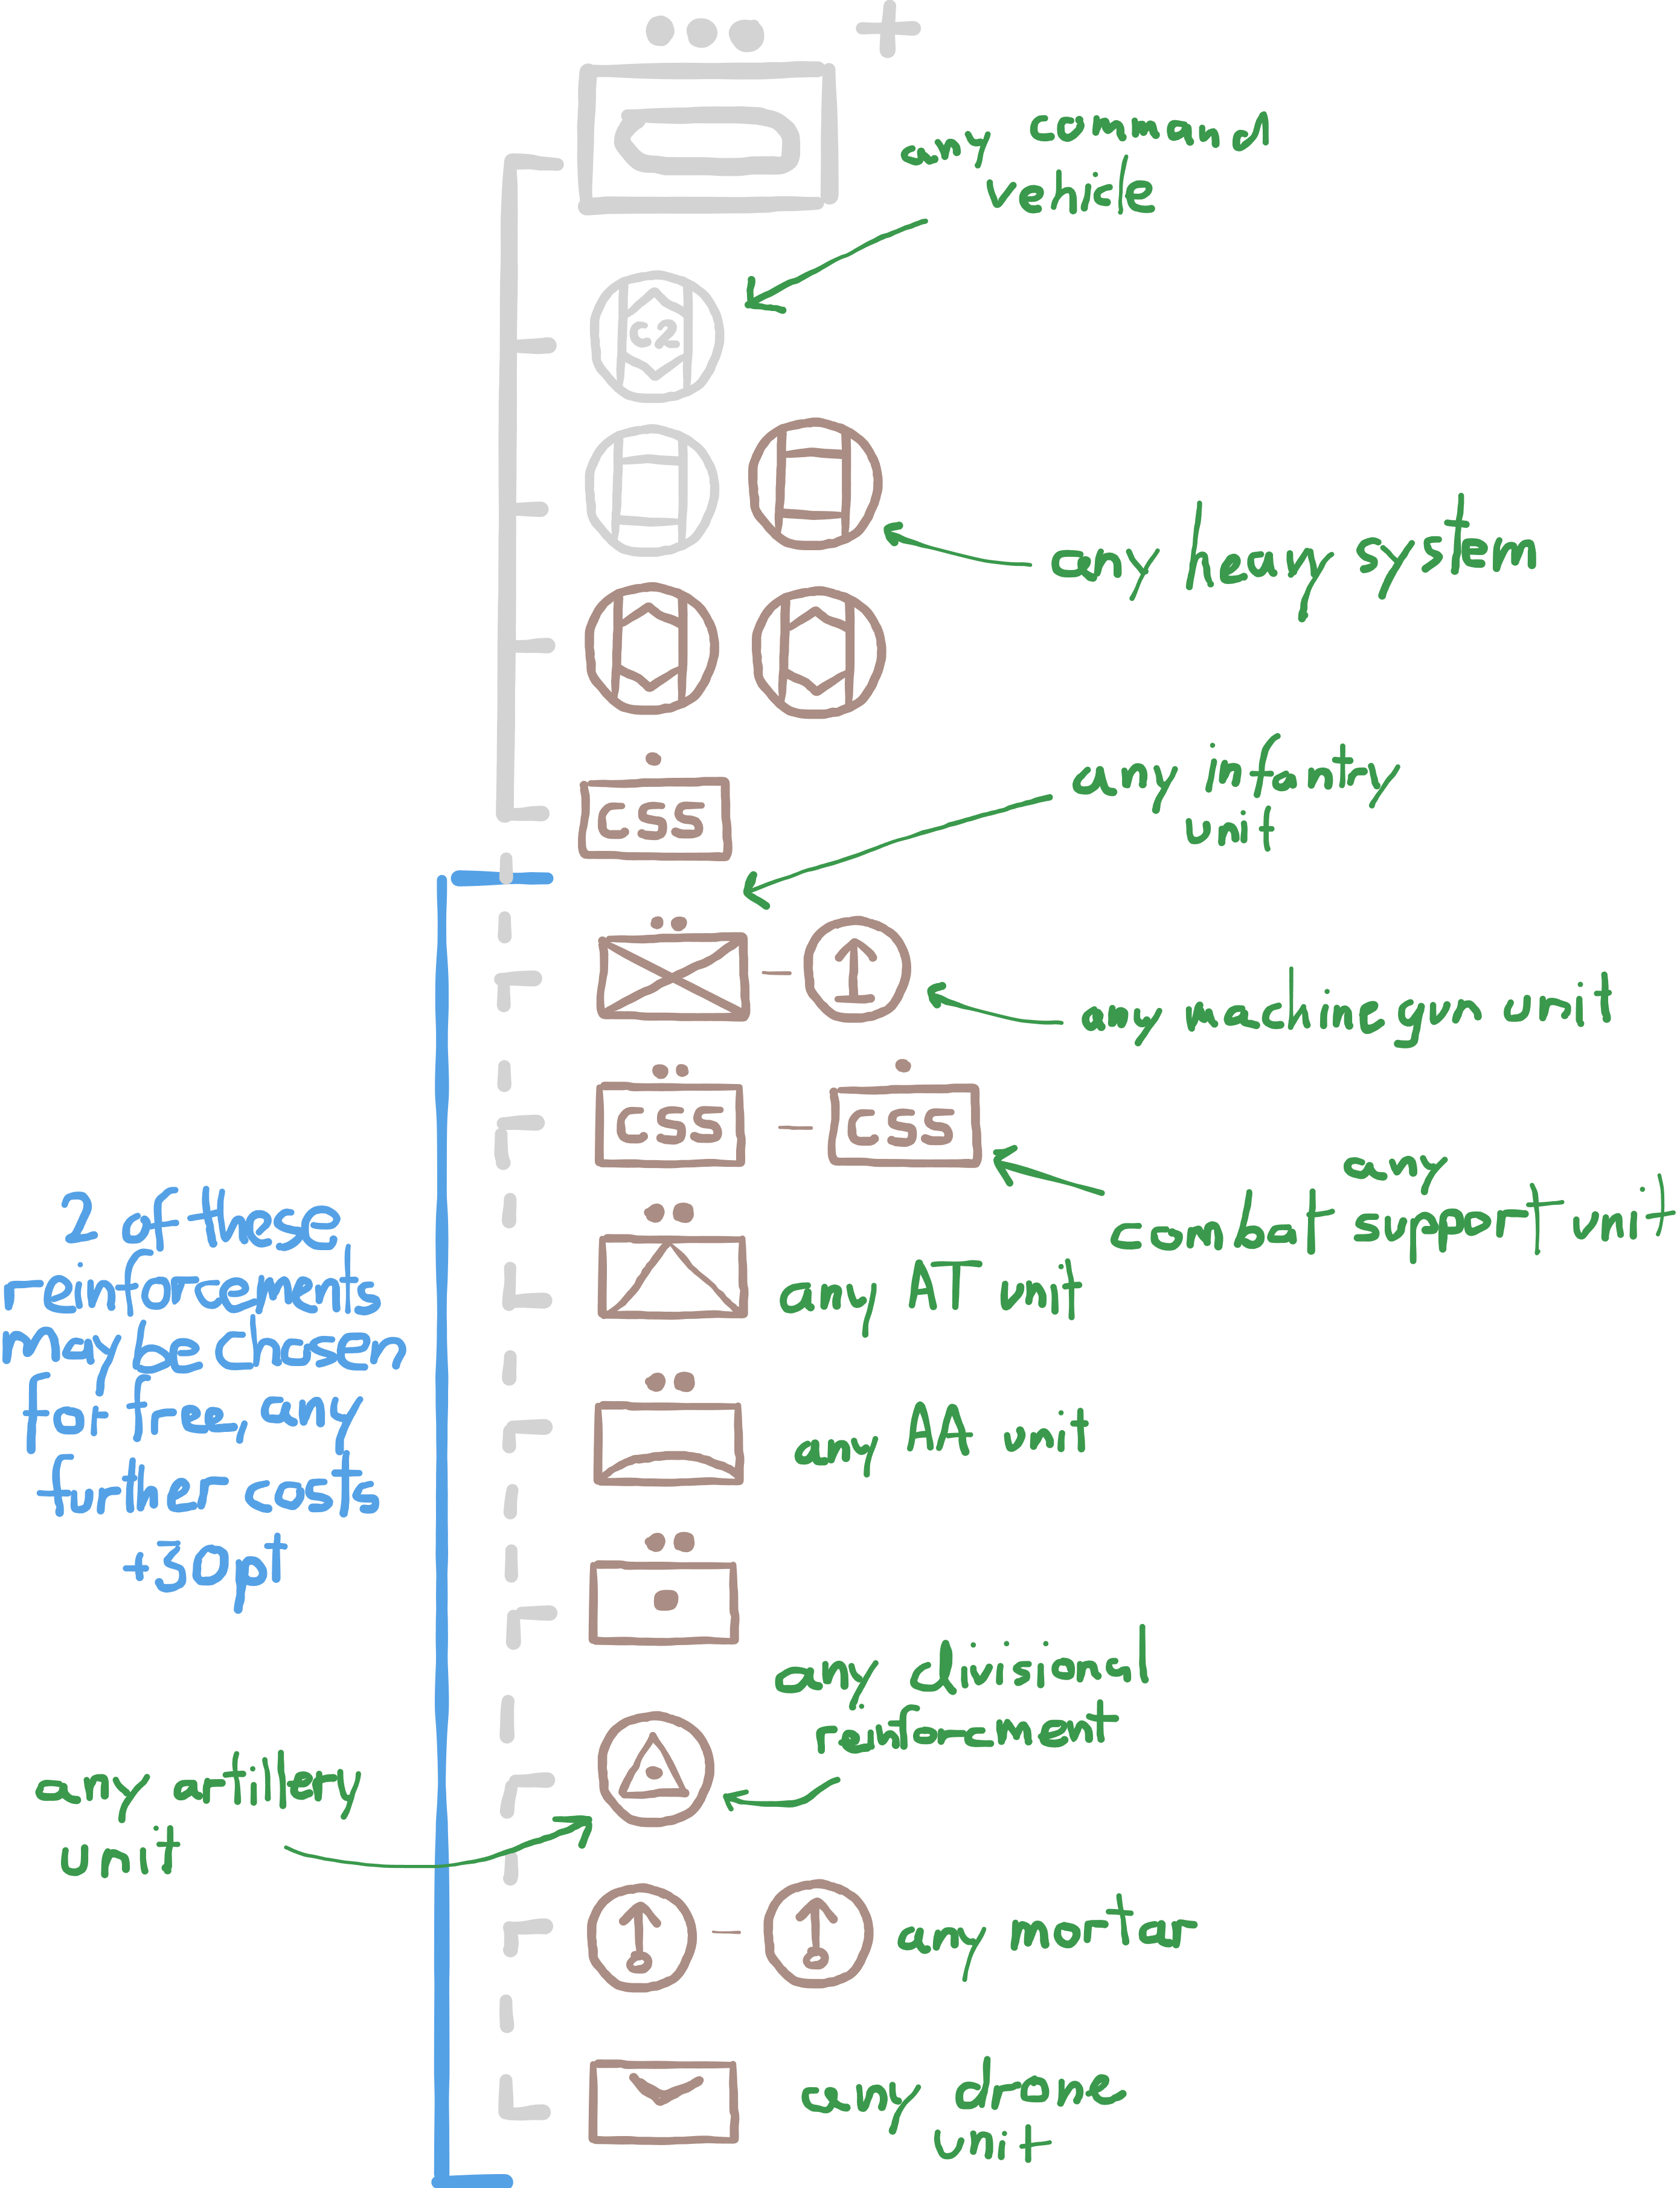 any command
vehicle
C2
any heavy system
any infantry
unit
CSS
any machinegun unit
CSS - CSS
any
combat support unit
2 of those
reinforcements
may be chosen
for free, any
further costs
+30pt
any AT unit
any AA unit
any divisional
reinforcment
any artillery
unit
any mortar
any drone
unit